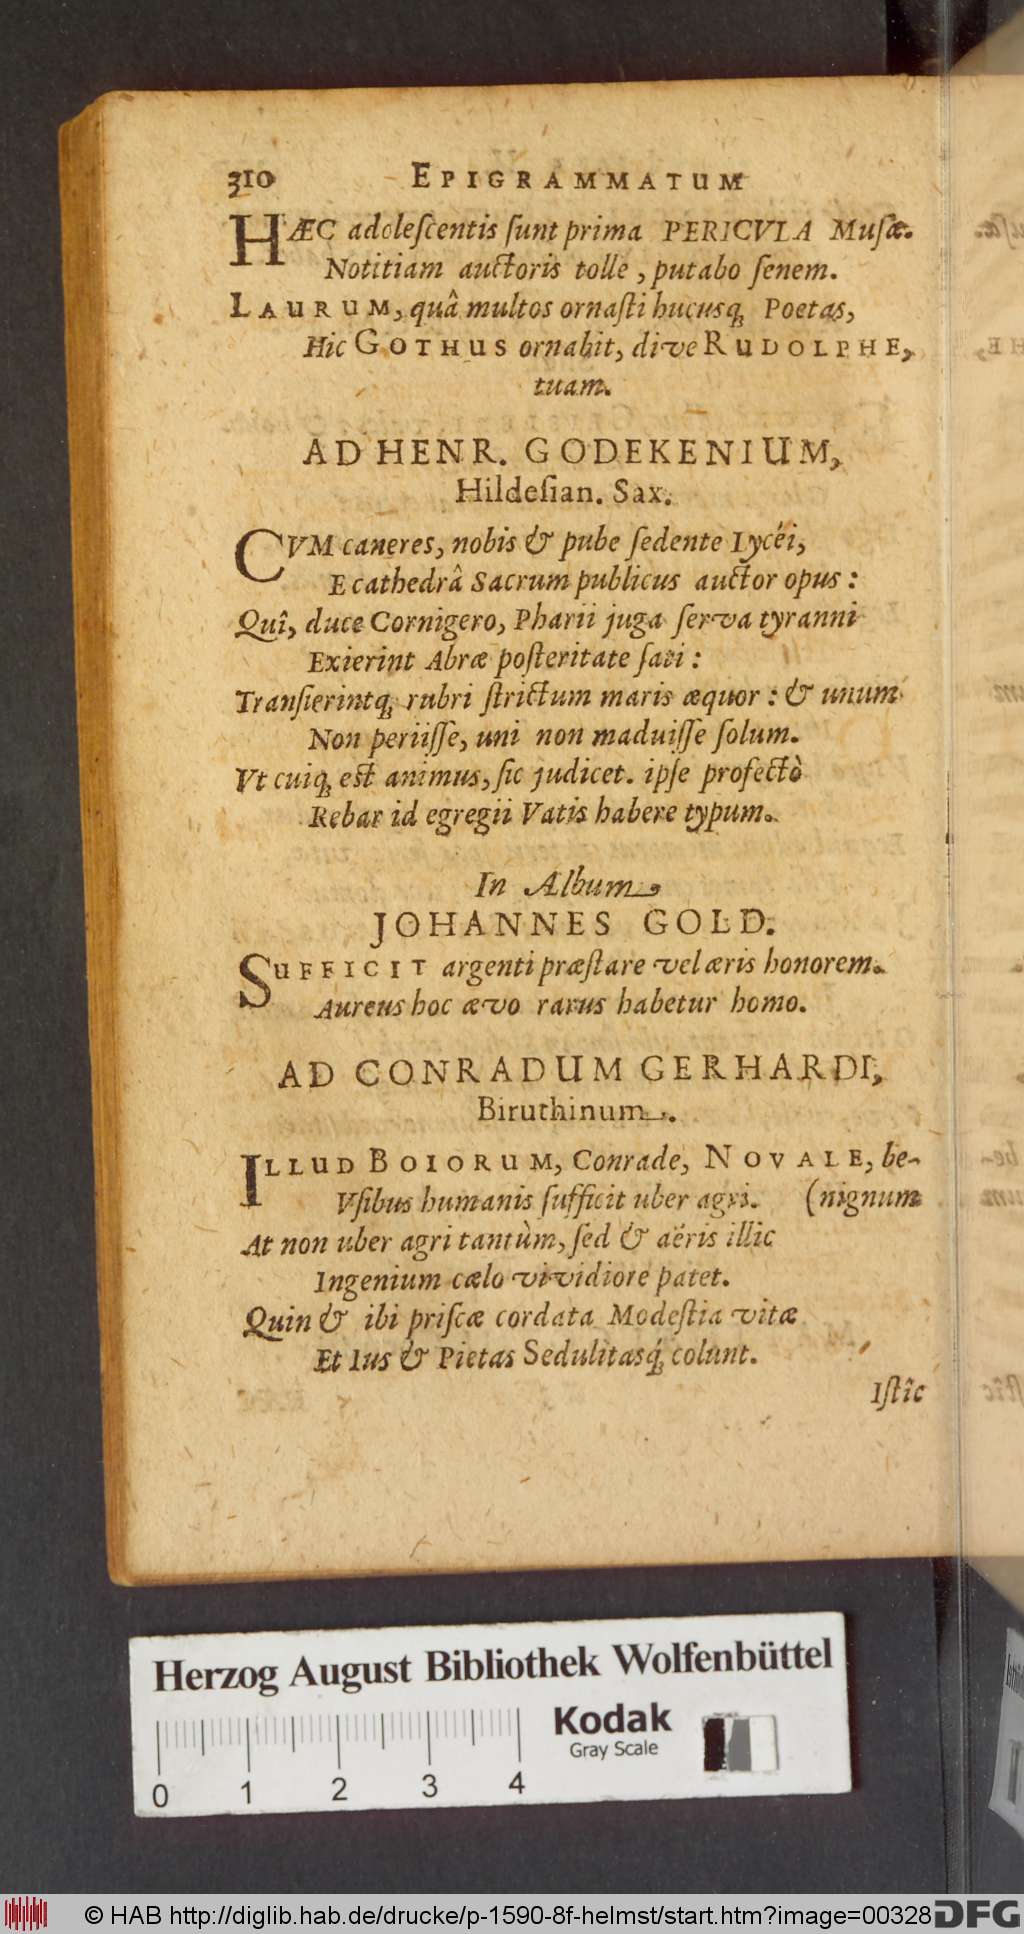 310 EPIGRAMMATUM
HÆC adoleſcentis ſunt prima PERICVLA Muſæ.
Notitiam auctoris tolle, putabo ſenem.
LAURUM, quâ multos ornaſti hucusq; Poetas,
Hic GOTHUS ornabit, dive RUDOLPHE,
tuam.
AD HENR. GODEKENIUM,
Hildeſian. Sax.
CVM caneres, nobis & pube ſedente Lycéi,
E cathedrâ Sacrum publicus auctor opus:
Quî, duce Cornigero, Pharii juga ſerva tyranni
Exierint Abræ poſteritate ſati:
Tranſierintq; rubri ſtrictum maris æquor: & unum
Non periiſſe, uni non maduiſſe ſolum.
Vt cuiq; est animus, ſic judicet. ipſe profectò
Rebar id egregii Vatis habere typum.
In Album
JOHANNES GOLD.
SUFFICIT argenti præſtare vel æris honorem.
Aureus hoc ævo rarus habetur homo.
AD CONRADUM GERHARDI,
Biruthinum.
ILLUD BOIORUM, Conrade, NOVALE, be-
Vſibus humanis ſufficit uber agri. (nignum
At non uber agri tantùm, ſed & aëris illic
Ingenium cælo vividiore patet.
Quin & ibi priſcæ cordata Modeſtia vitæ
Et Ius & Pietas Sedulitasq́; colunt.
Iſtîc
Herzog August Bibliothek Wolfenbüttel
Kodak
Gray Scale
0 1 2 3 4
© HAB http://diglib.hab.de/drucke/p-1590-8f-helmst/start.htm?image=00328 DFG